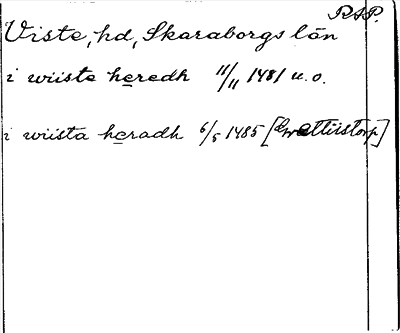 RAP.
Viste, hd, Skaraborgs län
i wiiste heredh 11/11 1481 u.o.
i wiista heradh 6/5 1485 [Qwettiistorp]